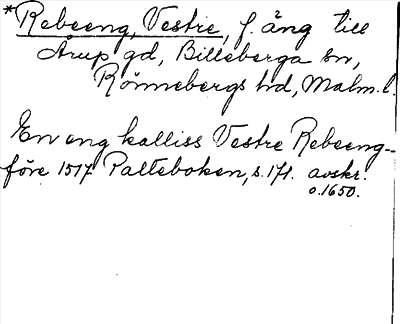 *Rebeeng, Vestre, f. äng till
Årup gd, Billeberga sn,
Rönnebergs hd, Malm. l.
En eng kalliss Vestre Rebeeng-
före 1517 Palteboken, s. 171. avskr.
o. 1650.